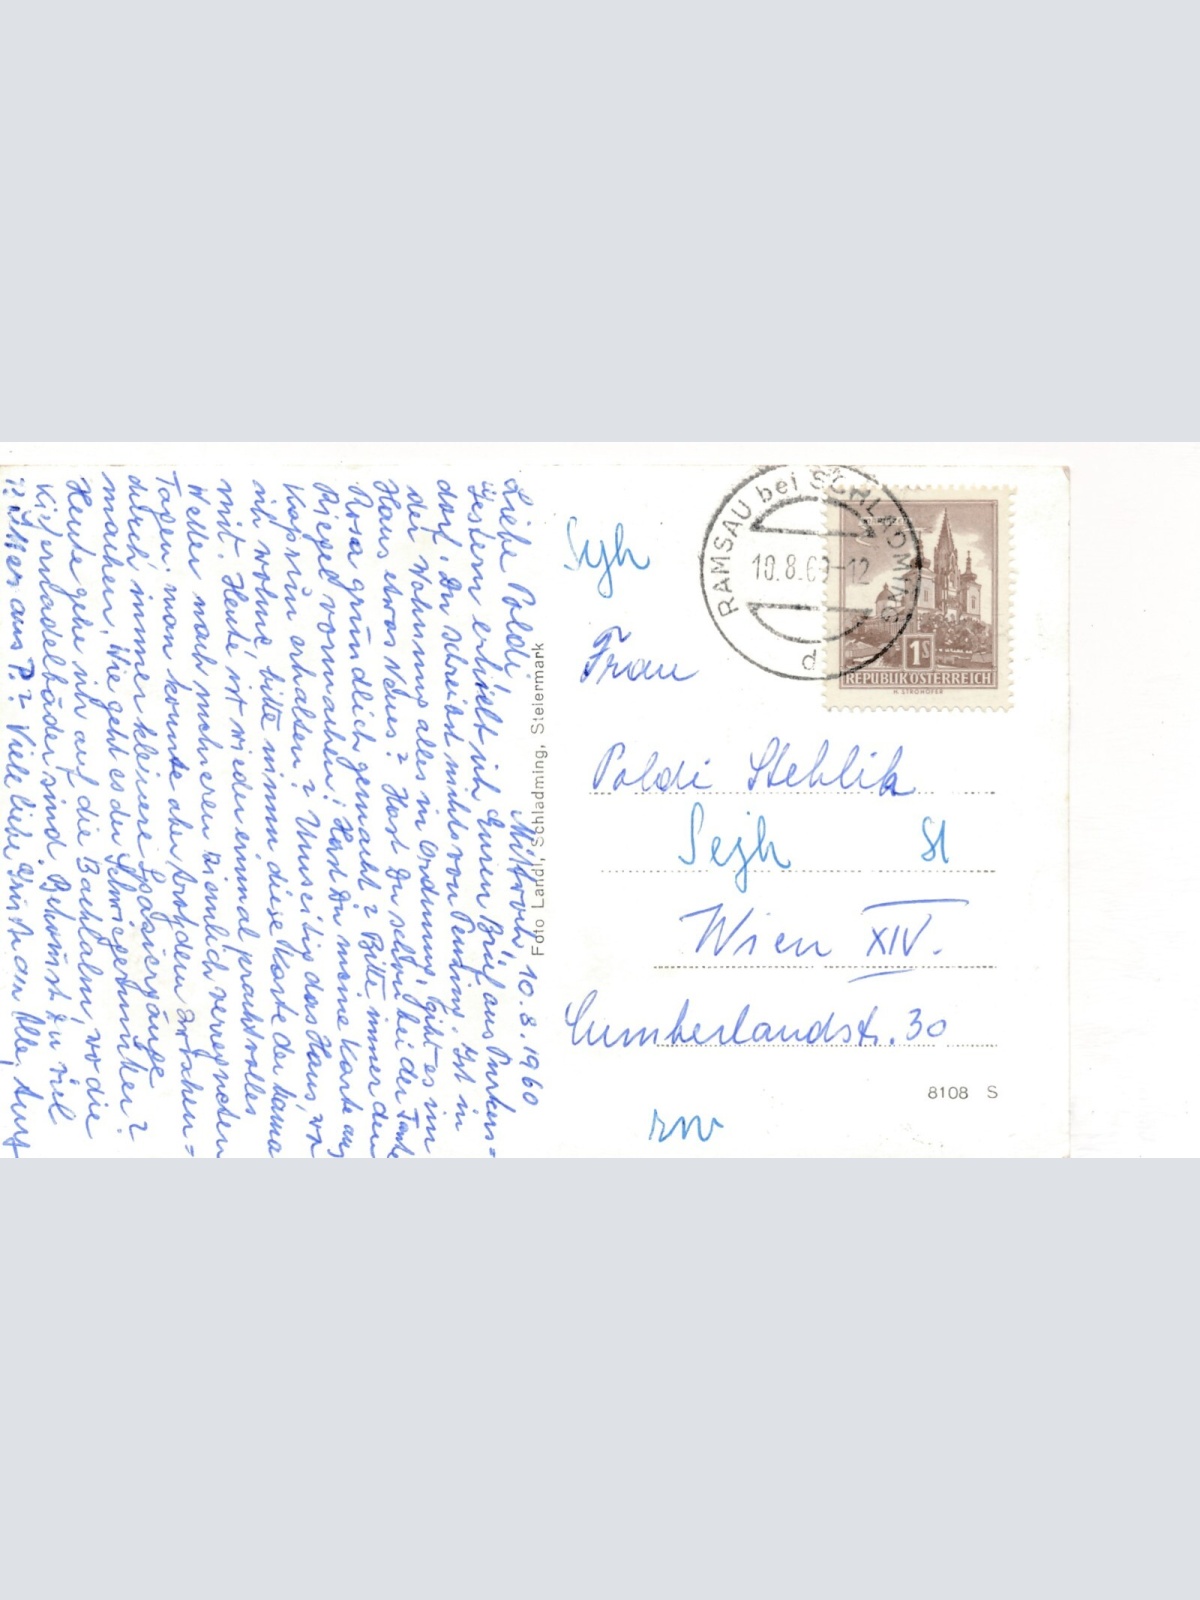 Mittwoch, 10.8.1960
Liebe Poldi!
Gestern erhielt ich Euren Brief aus Purkers-
dorf. Du schreibst nichts von Ist in
der Wohnung alles in Ordnung, gibt es im
Haus etwas Neues? Hast Du schon bei der Tante
Rosa gründlich gemacht? Bitte immer den
Riegel vormachen! Hast Du meine Karte aus
Kaprun erhalten? Umseitig das Haus, wo
ich wohne, bitte nimm diese Karte der Mama
mit. Heute ist wieder einmal prachtvolles
Wetter nach mehreren ziemlich verregneten
Tagen, man konnte aber trotzdem zwischen-
durch immer kleinere Spaziergänge
machen. Wie geht es der Schwiegermutter?
Heute gehe ich auf die Bachlalm, wo die
sind. Bekommst Du viel
aus P.? Viele liebe Grüße an Alle,
Foto Landl, Schladming, Steiermark
RAMSAU bei SCHLADMING
10.8.60-12
d
1S
REPUBLIK ÖSTERREICH
H. STROHOFER
Frau
Poldi Steblik
Wien XIV.
Cumberlandstr. 30
8108 S